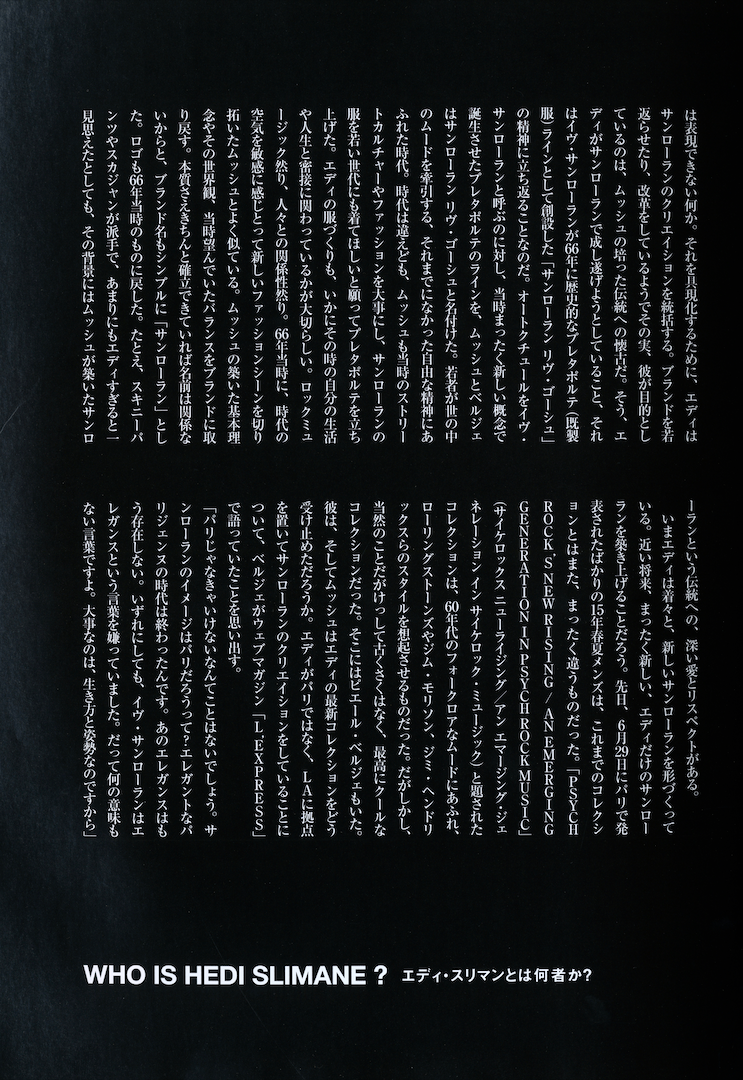 は表現できない何か。それを具現化するために、エディは
サンローランのクリエイションを統括する。ブランドを若
返らせたり、改革をしているようでその実、彼が目的とし
ているのは、ムッシュの培った伝統への懐古だ。そう、エ
ディがサンローランで成し遂げようとしていること、それ
はイヴ・サンローランが66年に歴史的なプレタポルテ（既製
服）ラインとして創設した「サンローラン リヴ・ゴーシュ」
の精神に立ち返ることなのだ。オートクチュールをイヴ・
サンローランと呼ぶのに対し、当時まったく新しい概念で
誕生させたプレタポルテのラインを、ムッシュとベルジェ
はサンローラン リヴ・ゴーシュと名付けた。若者が世の中
のムードを牽引する、それまでになかった自由な精神にあ
ふれた時代。時代は違えども、ムッシュも当時のストリー
トカルチャーやファッションを大事にし、サンローランの
服を若い世代にも着てほしいと願ってプレタポルテを立ち
上げた。エディの服づくりも、いかにその時の自分の生活
や人生と密接に関わっているかが大切らしい。ロックミュ
ージック然り、人々との関係性然り。66年当時に、時代の
空気を敏感に感じとって新しいファッションシーンを切り
拓いたムッシュとよく似ている。ムッシュの築いた基本理
念やその世界観、当時望んでいたバランスをブランドに取
り戻す。本質さえきちんと確立できていれば名前は関係な
いからと、ブランド名もシンプルに「サンローラン」とし
た。ロゴも66年当時のものに戻した。たとえ、スキニーパ
ンツやスカジャンが派手で、あまりにもエディすぎると一
見思えたとしても、その背景にはムッシュが築いたサンロ
ーランという伝統への、深い愛とリスペクトがある。
いまエディは着々と、新しいサンローランを形づくって
いる。近い将来、まったく新しい、エディだけのサンロー
ランを築き上げることだろう。先日、6月29日にパリで発
表されたばかりの15年春夏メンズは、これまでのコレクシ
ョンとはまた、まったく違うものだった。「PSYCH
ROCK'S NEW RISING / AN EMERGING
GENERATION IN PSYCH ROCK MUSIC」
（サイケロックス ニューライジング／アン エマージング・ジェ
ネレーション イン サイケロック・ミュージック）と題された
コレクションは、60年代のフォークロアなムードにあふれ、
ローリングストーンズやジム・モリソン、ジミ・ヘンドリ
ックスらのスタイルを想起させるものだった。だがしかし、
当然のことだがけっして古くさくはなく、最高にクールな
コレクションだった。そこにはピエール・ベルジェもいた。
彼は、そしてムッシュはエディの最新コレクションをどう
受け止めただろうか。エディがパリではなく、LAに拠点
を置いてサンローランのクリエイションをしていることに
ついて、ベルジェがウェブマガジン「L'EXPRESS」
で語っていたことを思い出す。
「パリじゃなきゃいけないなんてことはないでしょう。サ
ンローランのイメージはパリだろうって？エレガントなパ
リジェンヌの時代は終わったんです。あのエレガンスはも
う存在しない。いずれにしても、イヴ・サンローランはエ
レガンスという言葉を嫌っていました。だって何の意味も
ない言葉ですよ。大事なのは、生き方と姿勢なのですから」
WHO IS HEDI SLIMANE ? エディ・スリマンとは何者か？